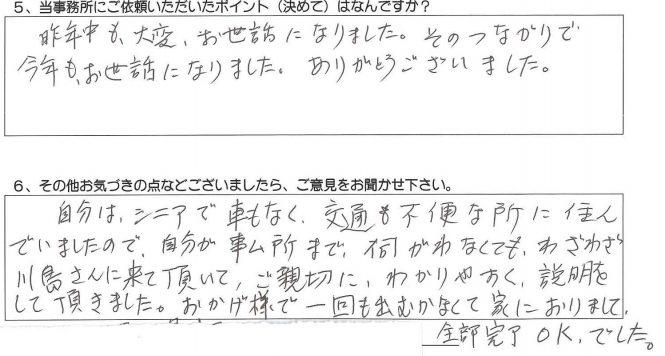 5、当事務所にご依頼いただいたポイント（決めて）はなんですか？
昨年中も、大変、お世話になりました。そのつながりで
今年も、お世話になりました。ありがとうございました。
6、その他お気づきの点などございましたら、ご意見をお聞かせ下さい。
自分は、シニアで車もなく、交通も不便な所に住ん
でいましたので、自分が事ム所まで、伺がわなくても、わざわざ
川島さんに来て頂いて、ご親切に、わかりやすく、説明を
して頂きました。おかげ様で一回も出むかなくて家におりまして、
全部完了OK、でした。